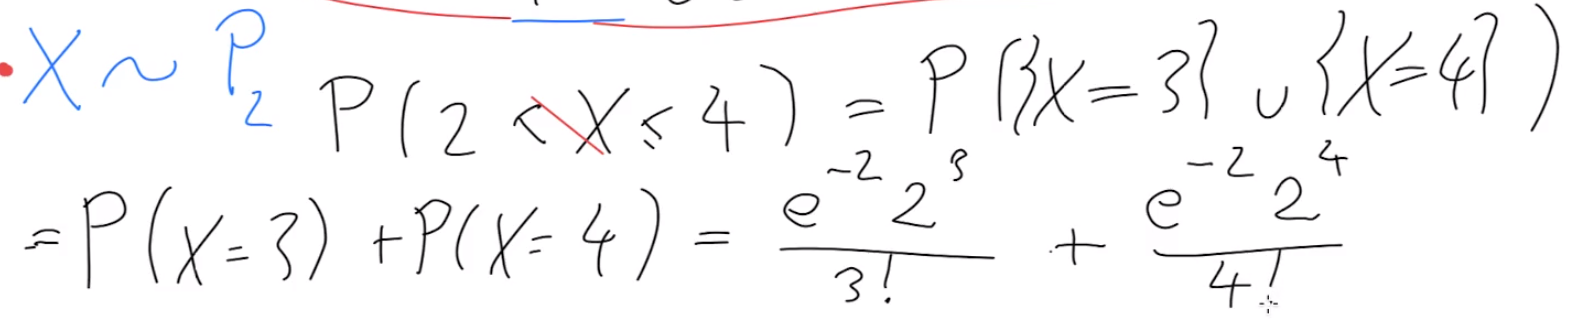 X ~ P₂ P(2 < X ≤ 4) = P({X=3} ∪ {X=4})
= P(X=3) + P(X=4) = e⁻² 2³ / 3! + e⁻² 2⁴ / 4!